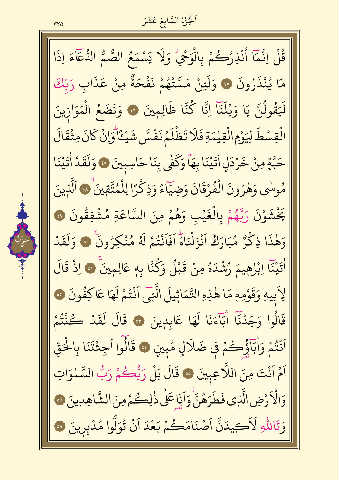 اَلْجُزْءُ السَّابِعَ عَشَرَ
٣٢٥
قُلْ اِنَّمَٓا اُنْذِرُكُمْ بِالْوَحْيِۘ وَلَا يَسْمَعُ الصُّمُّ الدُّعَٓاءَ اِذَا
مَا يُنْذَرُونَ ﴿٤٥﴾ وَلَئِنْ مَسَّتْهُمْ نَفْحَةٌ مِنْ عَذَابِ رَبِّكَ
لَيَقُولُنَّ يَا وَيْلَنَٓا اِنَّا كُنَّا ظَالِمِينَ ﴿٤٦﴾ وَنَضَعُ الْمَوَازِينَ
الْقِسْطَ لِيَوْمِ الْقِيٰمَةِ فَلَا تُظْلَمُ نَفْسٌ شَيْـًٔاۜ وَاِنْ كَانَ مِثْقَالَ
حَبَّةٍ مِنْ خَرْدَلٍ اَتَيْنَا بِهَاۜ وَكَفٰى بِنَا حَاسِبِينَ ﴿٤٧﴾ وَلَقَدْ اٰتَيْنَا
مُوسٰى وَهٰرُونَ الْفُرْقَانَ وَضِيَٓاءً وَذِكْرًا لِلْمُتَّقِينَۙ ﴿٤٨﴾ اَلَّذِينَ
يَخْشَوْنَ رَبَّهُمْ بِالْغَيْبِ وَهُمْ مِنَ السَّاعَةِ مُشْفِقُونَ ﴿٤٩﴾
وَهٰذَا ذِكْرٌ مُبَارَكٌ اَنْزَلْنَاهُۜ اَفَاَنْتُمْ لَهُ مُنْكِرُونَ۟ ﴿٥٠﴾ وَلَقَدْ
اٰتَيْنَٓا اِبْرٰهِيمَ رُشْدَهُ مِنْ قَبْلُ وَكُنَّا بِهِ عَالِمِينَۚ ﴿٥١﴾ اِذْ قَالَ
لِاَبِيهِ وَقَوْمِهِ مَا هٰذِهِ التَّمَاثِيلُ الَّتِٓي اَنْتُمْ لَهَا عَاكِفُونَ ﴿٥٢﴾
قَالُوا وَجَدْنَٓا اٰبَٓاءَنَا لَهَا عَابِدِينَ ﴿٥٣﴾ قَالَ لَقَدْ كُنْتُمْ
اَنْتُمْ وَاٰبَٓاؤُ۬كُمْ فِي ضَلَالٍ مُبِينٍ ﴿٥٤﴾ قَالُٓوا اَجِئْتَنَا بِالْحَقِّ
اَمْ اَنْتَ مِنَ اللَّاعِبِينَ ﴿٥٥﴾ قَالَ بَلْ رَبُّكُمْ رَبُّ السَّمٰوَاتِ
وَالْاَرْضِ الَّذِي فَطَرَهُنَّۘ وَاَنَا۬ عَلٰى ذٰلِكُمْ مِنَ الشَّاهِدِينَ ﴿٥٦﴾
وَتَاللّٰهِ لَاَكِيدَنَّ اَصْنَامَكُمْ بَعْدَ اَنْ تُوَلُّوا مُدْبِرِينَ ﴿٥٧﴾